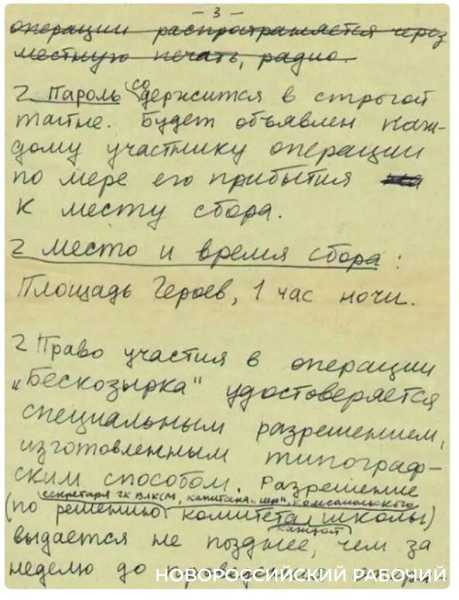 - 3 -
операции распространяется через
местную печать, радио.
2 Пароль содержится в строгой
тайне. Будет объявлен каж-
дому участнику операции
по мере его прибытия
к месту сбора.
2 место и время сбора:
Площадь Героев, 1 час ночи.
2 Право участия в операции
„Бескозырка" удостоверяется
специальным разрешением,
изготовленным типограф-
ским способом. Разрешение
секретаря ГК ВЛКСМ, капитана „шр", комсомольского
(по решению комитетал школы)
выдается не позднее, чем за
неделю до проведения
НОВОРОССИЙСКИЙ РАБОЧИЙ